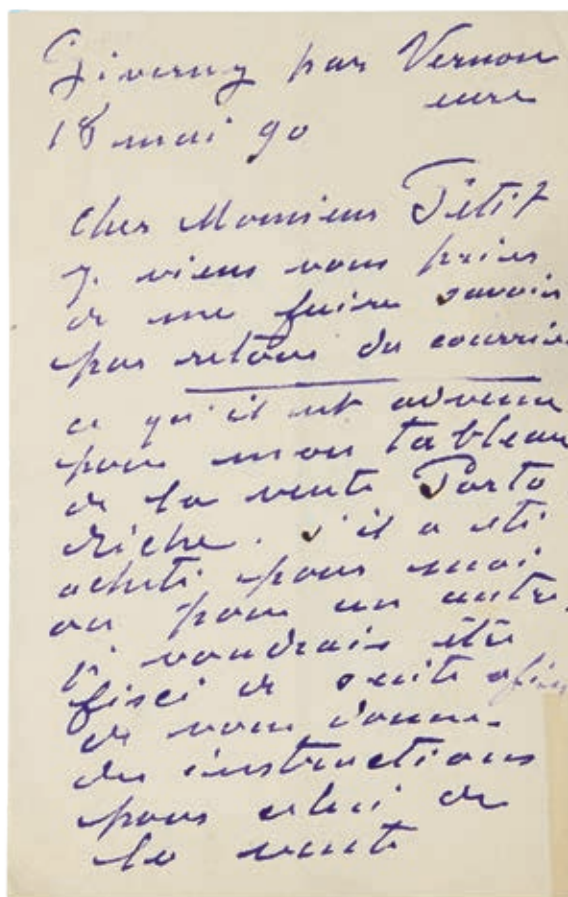 Giverny par Vernon
eure
18 mai 90
Cher Monsieur Petit
Je viens vous prier
de me faire savoir
par retour du courrier
ce qu'il est advenu
pour mon tableau
de la vente Porto
Riche. s'il a été
acheté pour moi
ou pour un autre,
je voudrais être
fixé de suite afin
de vous donner
des instructions
pour celui de
la vente